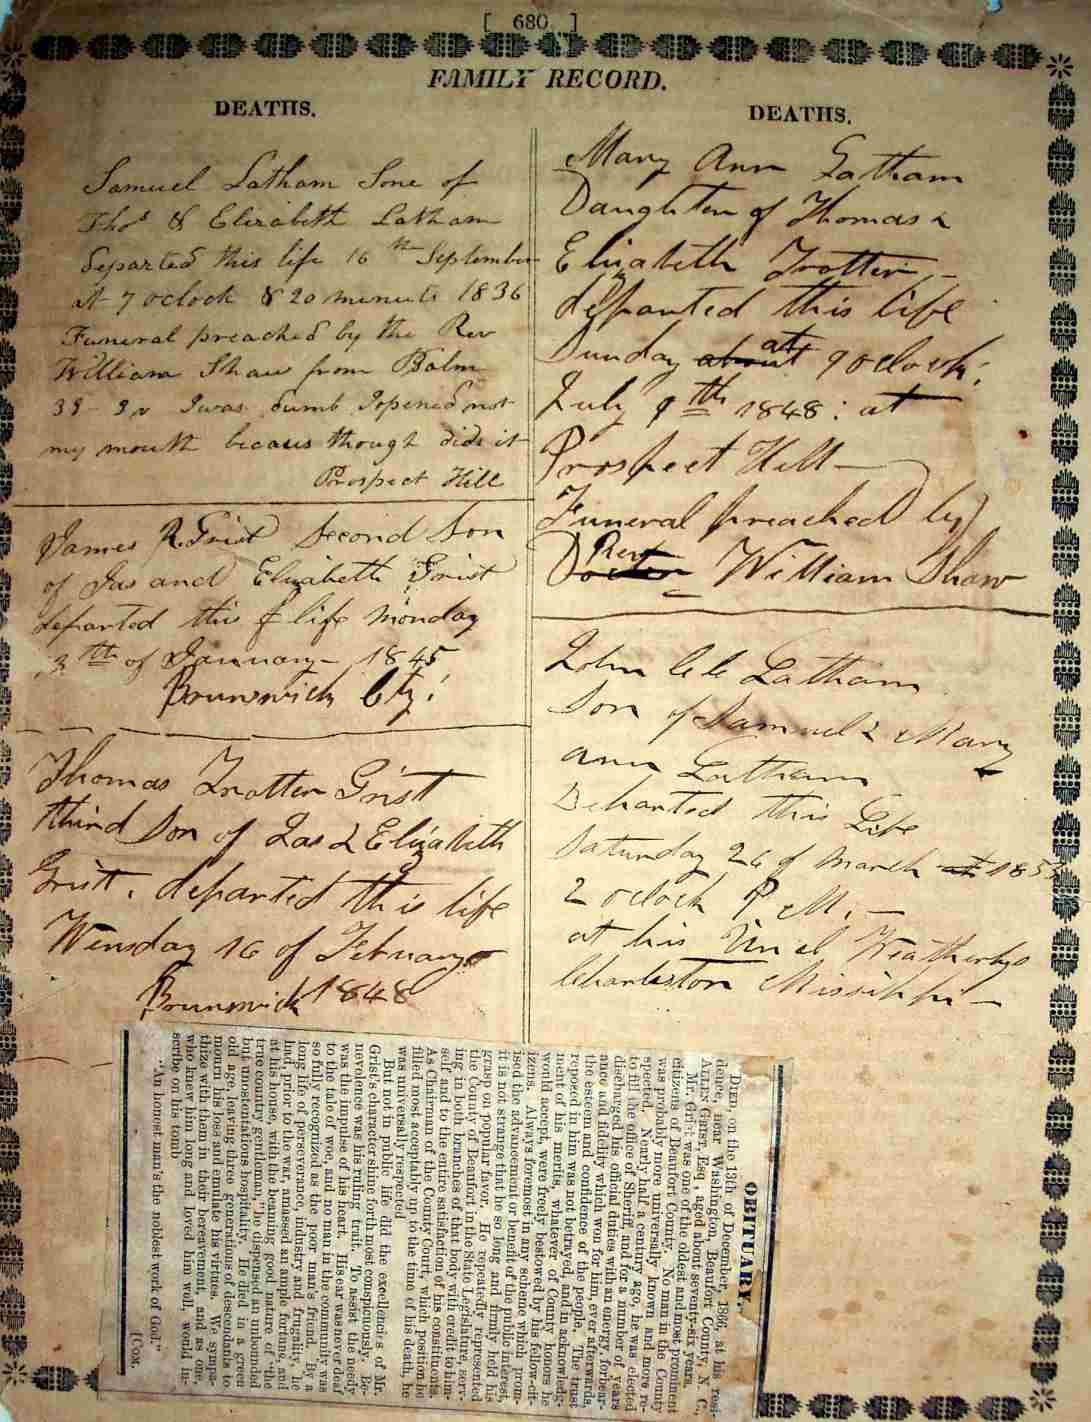 [ 680 ]
FAMILY RECORD.
DEATHS.
Samuel Latham Sone of
Thos & Elizabeth Latham
departed this life 16th September
At 7 oclock & 20 minute 1836
Funeral preached by the Rev
William Shaw from Psalm
39 - I was dumb I opened not
my mouth becaus though did it
Prospect Hill
James R. Grist Second Son
of Jas and Elizabeth Grist
departed this life monday
of January 1845
Brunswick Cty.
Thomas Trotter Grist
third Son of Jas & Elizabeth
Grist. departed this life
Wensday 16 of February
Brunswick 1848
DEATHS.
Mary Ann Latham
Daughter of Thomas &
Elizabeth Trotter
departed this life
Sunday about at 9 oclock.
July 9th 1848: at
Prospect Hill
Funeral preached by
Doctor Rev William Shaw
John Latham
Son of Samuel & Mary
ann Latham
Departed this Life
Saturday 26 of March at
2 oclock P M. -
at his Weatherbys
Charleston Missippi -
OBITUARY.
DIED, on the 13th of December, 1866, at his resi-
dence, near Washington, Beaufort County, N. C.,
ALLEN GRIST, Esq., aged about seventy-six years.
Mr. Grist was one of the oldest and most prominent
citizens of Beaufort County. No man in the County
was probably more universally known and more re-
spected. Nearly half a century ago, he was elected
to fill the office of Sheriff, and for a number of years
discharged his official duties with an energy, forbear-
ance and fidelity which won for him, ever afterwards,
the esteem and confidence of the people. The trust
reposed in him was not betrayed, and in acknowledg-
ment of his merits, whatever of County honors he
would accept, were freely bestowed by his fellow-cit-
izens. Always foremost in any scheme which prom-
ised the advancement or benefit of the public interest,
it is not strange that he so long and firmly held his
grasp on popular favor. He repeatedly represented
the County of Beaufort in the State Legislature, serv-
ing in both branches of that body with credit to him-
self and to the entire satisfaction of his constituents.
As Chairman of the County Court, which position he
filled most acceptably up to the time of his death, he
was universally respected
But not in public life did the excellencies of Mr.
Grist's character shine forth most conspicuously. Be-
nevolence was his ruling trait. To assist the needy
was the impulse of his heart. His ear was never deaf
to the tale of woe, and no man in the community was
so fully recognized as the poor man's friend. By a
long life of perseverance, industry and frugality, he
had, prior to the war, amassed an ample fortune, and
at his house, with the beaming good nature of "the
true country gentleman," he dispensed an unbounded
but unostentatious hospitality. He died in a green
old age, leaving three generations of descendants to
mourn his loss and emulate his virtues. We sympa-
thize with them in their bereavement, and as one,
who knew him long and loved him well, would in-
scribe on his tomb
"An honest man's the noblest work of God."
[COM.